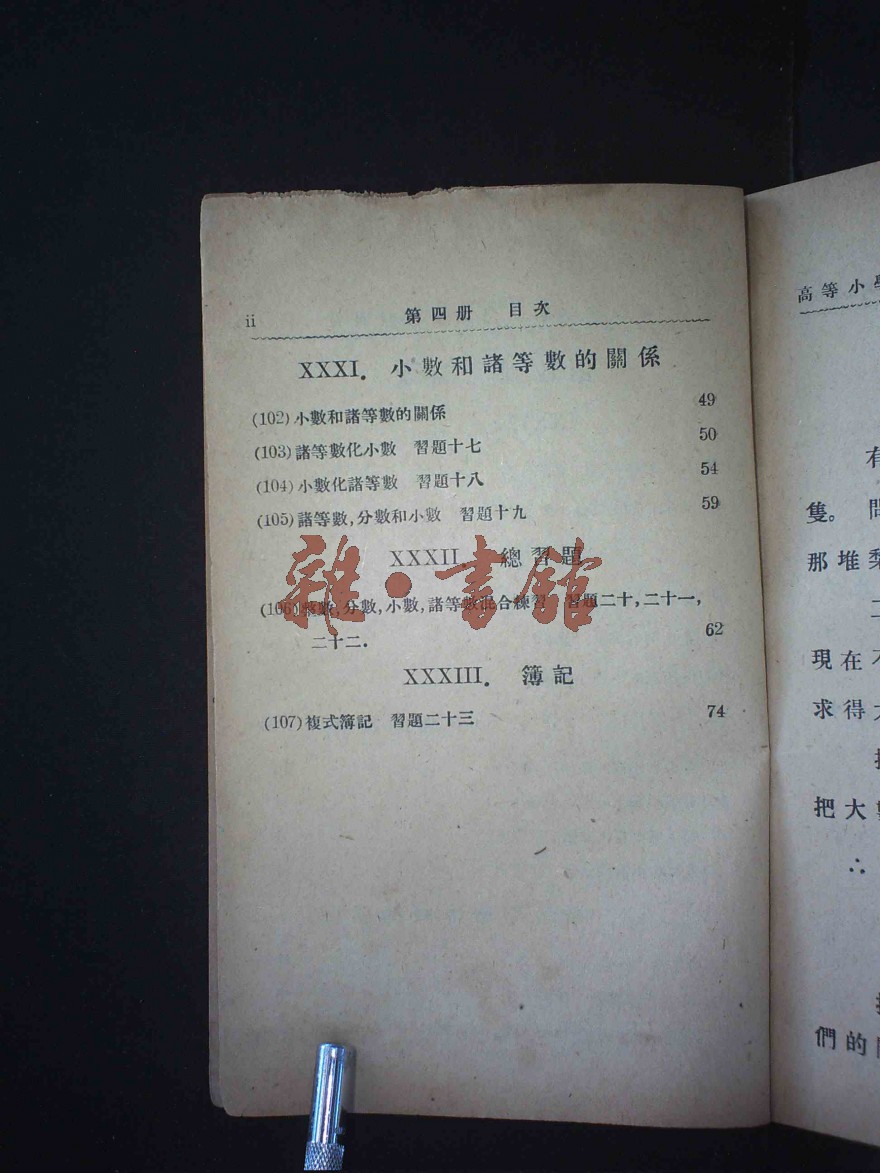 ii
第四册 目次
XXXI. 小數和諸等數的關係
(102) 小數和諸等數的關係 49
(103) 諸等數化小數 習題十七 50
(104) 小數化諸等數 習題十八 54
(105) 諸等數,分數和小數 習題十九 59
XXXII. 總習題
(106) 整數,分數,小數,諸等數混合練習 習題二十,二十一,
二十二. 62
XXXIII. 簿記
(107) 複式簿記 習題二十三 74
雜·書館
高等小學
有
隻。問
那堆梨
二
現在不
求得大
把大數
∴
們的